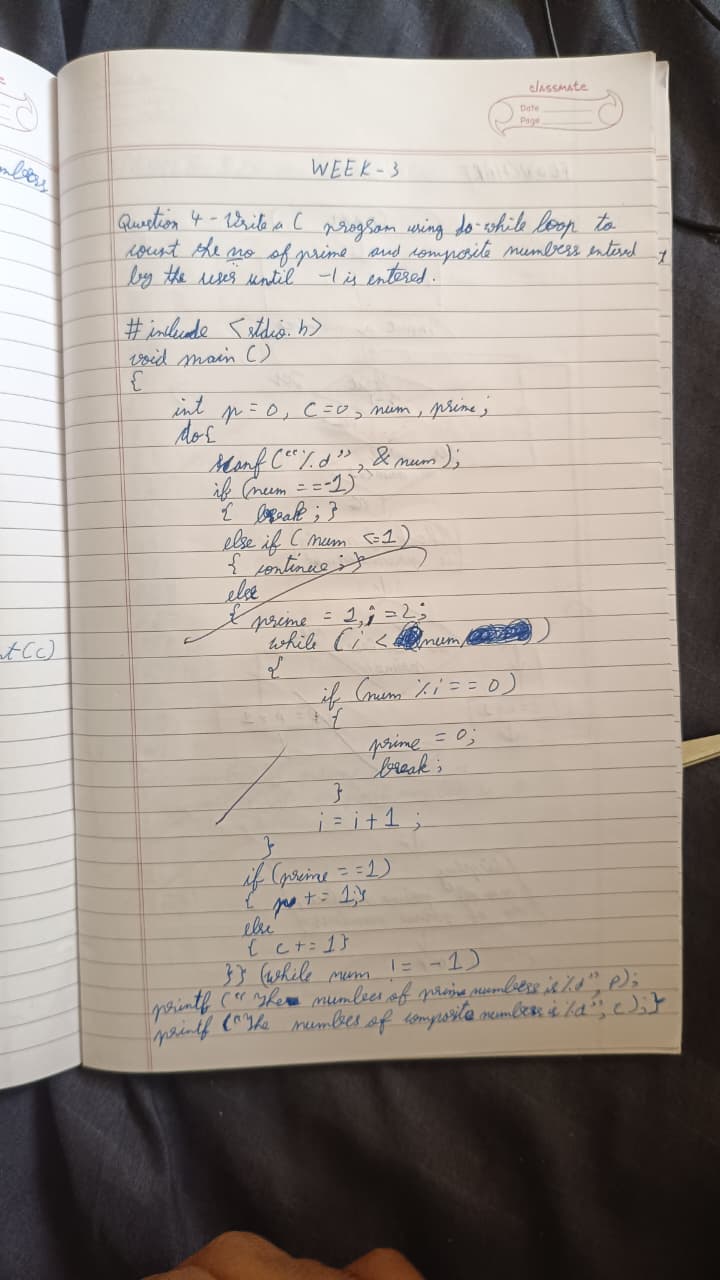 classmate
Date
Page
mbers
WEEK-3
Question 4 - Write a C program using do-while loop to
count the no of prime and composite numbers entered
by the user until -1 is entered.
# include <stdio.h>
void main ()
{
int p = 0, c=0, num, prime;
do{
scanf ("%d", &num);
if (num ==-1)
{ break ; }
else if ( num <=1)
{ continue ; }
else
{ prime = 1, i =2;
while (i < num )
{
if (num % i == 0)
{
prime = 0;
break ;
}
i = i+1 ;
}
if (prime ==1)
{ p += 1;}
else
{ c += 1}
}} (while num != -1)
printf ("The number of prime numbers is %d", p);
printf ("The number of composite number is %d", c);}
nt(c)